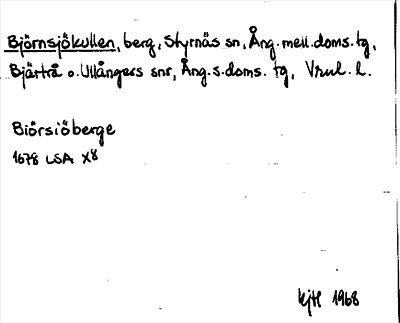 Björnsjökullen, berg, Styrnäs sn, Ång. mell. doms. tg,
Bjärtrå o. Ullångers snr, Ång. s. doms. tg, Vrnl. l.
Biörsiöberge
1678 LSA X8
kjH 1968